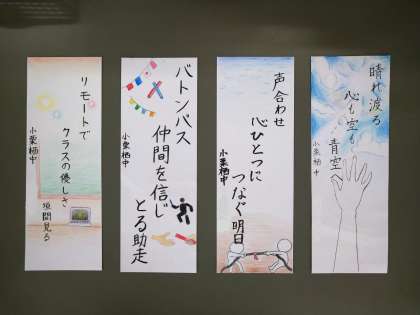 晴れ渡る
心も空も
青空へ
小栗栖中
声合わせ
心ひとつに
つなぐ明日
小栗栖中
バトンパス
仲間を信じ
とる助走
小栗栖中
リモートで
クラスの優しさ
垣間見る
小栗栖中